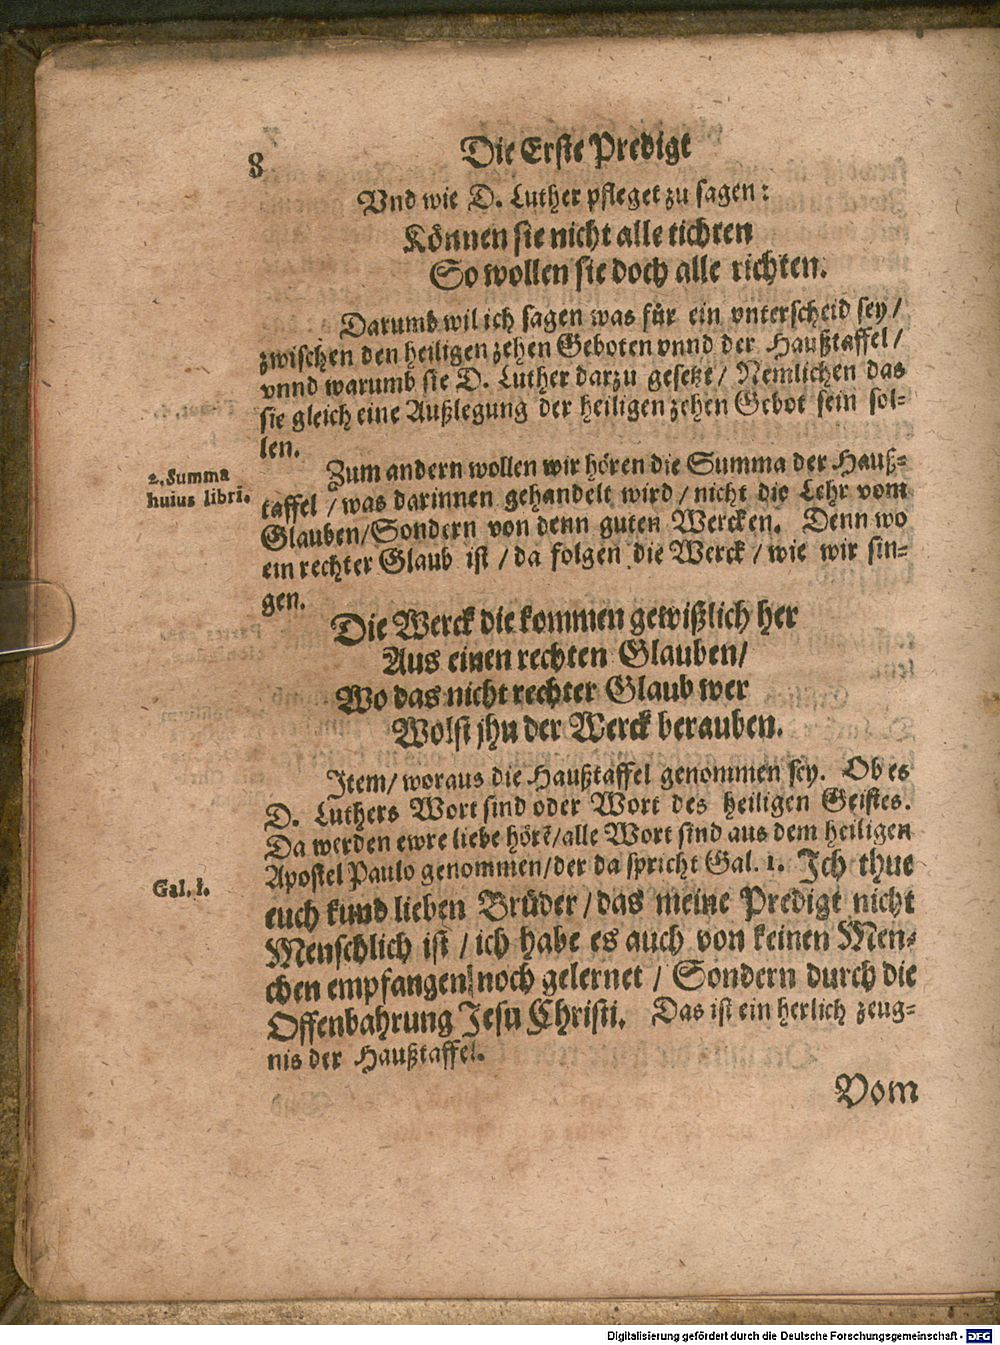 8
Die Erste Predigt
Vnd wie D. Luther pfleget zu sagen:
Können sie nicht alle tichten
So wollen sie doch alle richten.
Darumb wil ich sagen was für ein vnterscheid sey/
zwischen den heiligen zehen Geboten vnnd der Haußtaffel/
vnnd warumb sie D. Luther darzu gesetzt/ Nemlichen das
sie gleich eine Außlegung der heiligen zehen Gebot sein sol-
len.
2. Summa
huius libri.
Zum andern wollen wir hören die Summa der Hauß-
taffel/ was darinnen gehandelt wird/ nicht die Lehr vom
Glauben/ Sondern von denn guten Wercken. Denn wo
ein rechter Glaub ist/ da folgen die Werck/ wie wir sin-
gen.
Die Werck die kommen gewißlich her
Aus einen rechten Glauben/
Wo das nicht rechter Glaub wer
Wolst jhn der Werck berauben.
Item/ woraus die Haußtaffel genommen sey. Ob es
D. Luthers Wort sind oder Wort des heiligen Geistes.
Da werden ewre liebe hörē/ alle Wort sind aus dem heiligen
Apostel Paulo genommen/ der da spricht Gal. 1. Ich thue
Gal. 1.
euch kund lieben Brüder/ das meine Predigt nicht
Menschlich ist/ ich habe es auch von keinen Men-
chen empfangen noch gelernet/ Sondern durch die
Offenbahrung Jesu Christi. Das ist ein herlich zeug-
nis der Haußtaffel.
Vom
Digitalisierung gefördert durch die Deutsche Forschungsgemeinschaft - DFG